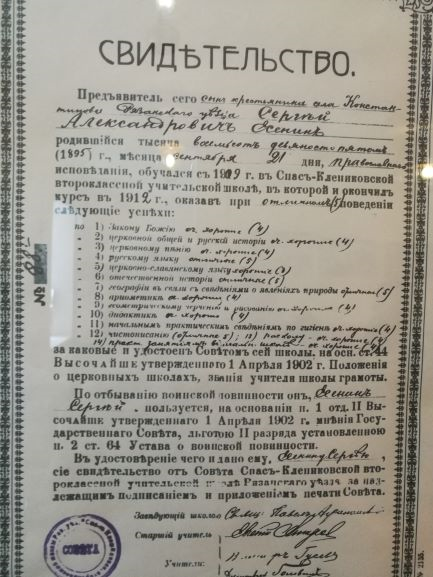 СВИДѢТЕЛЬСТВО.
Предъявитель сего сынъ крестьянина села Констан-
тинова Рязанскаго уѣзда Сергѣй
Александровичъ Есенинъ
родившійся тысяча восемьсотъ девяносто пятомъ
(1895) г., мѣсяца сентября 21 дня, православнаго
исповѣданія, обучался съ 1909 г. въ Спасъ-Клепиковской
второклассной учительской школѣ, въ которой и окончилъ
курсъ въ 1912 г., оказавъ при отличномъ (5) поведеніи
слѣдующіе успѣхи:
по 1) Закону Божію оч. хорошіе (4)
„ 2) церковной общей и русской исторіи оч. хорошіе (4)
„ 3) церковному пѣнію оч. хорошіе (4)
„ 4) русскому языку отличные (5)
„ 5) церковно-славянскому языку хорошіе
„ 6) отечественной исторіи отличные (5)
„ 7) географіи въ связи съ свѣдѣніями о явленіяхъ природы отличные (5)
„ 8) ариѳметикѣ оч. хорошіе (4)
„ 9) геометрическому черченію и рисованію оч. хорошіе (4)
„ 10) дидактикѣ оч. хорошіе (4)
„ 11) начальнымъ практическимъ свѣдѣніямъ по гигіенѣ оч. хорошіе (4)
„ 12) чистописанію (отличные 5); 13) оч. хорошіе (4)
14) практ. занятіямъ школѣ оч. хорошіе (4)
за каковые и удостоенъ Совѣтомъ сей школы, на осн. ст. 44
Высочайше утвержденнаго 1 Апрѣля 1902 г. Положенія
о церковныхъ школахъ, званія учителя школы грамоты.
По отбыванію воинской повинности онъ, Есенинъ
Сергѣй, пользуется, на основаніи п. 1 отд. II Вы-
сочайше утвержденнаго 1 Апрѣля 1902 г. мнѣнія Го-
сударственнаго Совѣта, льготою II разряда установленною
п. 2 ст. 64 Устава о воинской повинности.
Въ удостовѣреніе чего и дано ему, Есенину Сергѣю,
сіе свидѣтельство отъ Совѣта Спасъ-Клепиковской вто-
роклассной учительской школы Рязанскаго уѣзда за над-
лежащимъ подписаніемъ и приложеніемъ печати Совѣта.
Завѣдующій школою Свящ.
Старшій учитель
Учители:
СОВѢТА
№